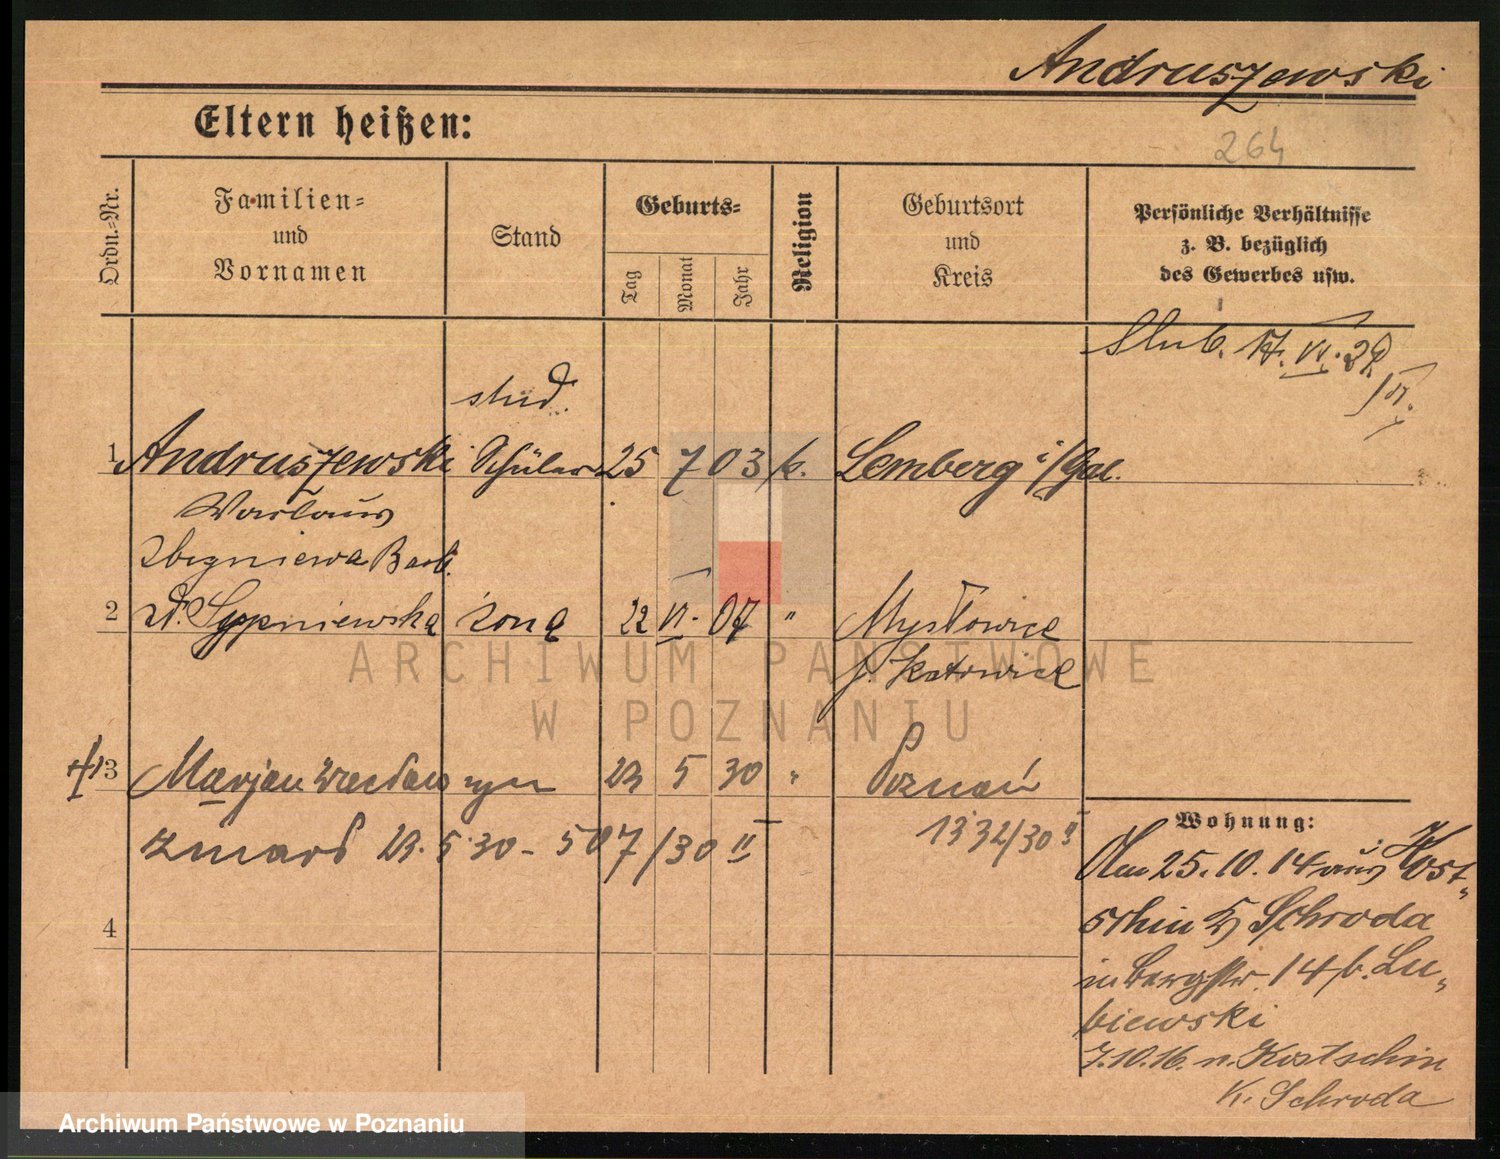 Andruszewski
Eltern heißen:
264
Ordn.-Nr.
Familien-
und
Vornamen
Stand
Geburts-
Tag
Monat
Jahr
Religion
Geburtsort
und
Kreis
Persönliche Verhältnisse
z. B. bezüglich
des Gewerbes usw.
Slub. 17. VI. 29
stud.
1 Andruszewski Schüler 25 7 03 k. Lemberg i/Gal.
Waclaus
Zbigniewa Barb.
2 z d. Sypniewska żona 22 VI. 07 " Mysłowice
p. Katowice
3 Marjan Wacław syn 23 5 30 " Poznań
zmarł 23. 5. 30 - 507/30 II
1332/30 II
4
Wohnung:
Am 25. 10. 14 aus Kost-
schin Kr Schroda
in Bergstr. 14 b. Lu-
biewski
7.10.16. n. Kostschin
K. Schroda
ARCHIWUM PAŃSTWOWE
W POZNANIU
Archiwum Państwowe w Poznaniu